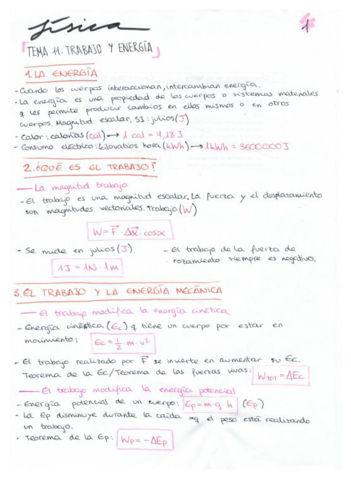 física
1
TEMA 11: TRABAJO Y ENERGÍA
1. LA ENERGÍA
- Cuando los cuerpos interaccionan, intercambian energía.
- La energía es una propiedad de los cuerpos o sistemas materiales
q les permite producir cambios en ellos mismos o en otros
cuerpos. Magnitud escalar, SI: julios (J)
- Calor: calorías (cal) → 1 cal = 4,18J
- Consumo eléctrico: kilovatios hora (kWh) → 1kWh = 3600000J
2. ¿QUÉ ES EL TRABAJO?
— La magnitud trabajo
- El trabajo es una magnitud escalar. La fuerza y el desplazamiento
son magnitudes vectoriales. Trabajo (W)
W = F · Δx · cosα
- Se mide en julios (J). - El trabajo de la fuerza de
1J = 1N · 1m rozamiento siempre es negativa.
3. EL TRABAJO Y LA ENERGÍA MECÁNICA
— El trabajo modifica la energía cinética
- Energía cinética (Ec) q tiene un cuerpo por estar en
movimiento: Ec = 1/2 m · v²
- El trabajo realizado por F se invierte en aumentar su Ec.
Teorema de la Ec/Teorema de las fuerzas vivas: WTOT = ΔEc
— El trabajo modifica la energía potencial
- Energía potencial de un cuerpo: Ep = m g h (Ep)
- La Ep disminuye durante la caída el peso está realizando
un trabajo.
- Teorema de la Ep: Wp = -ΔEp